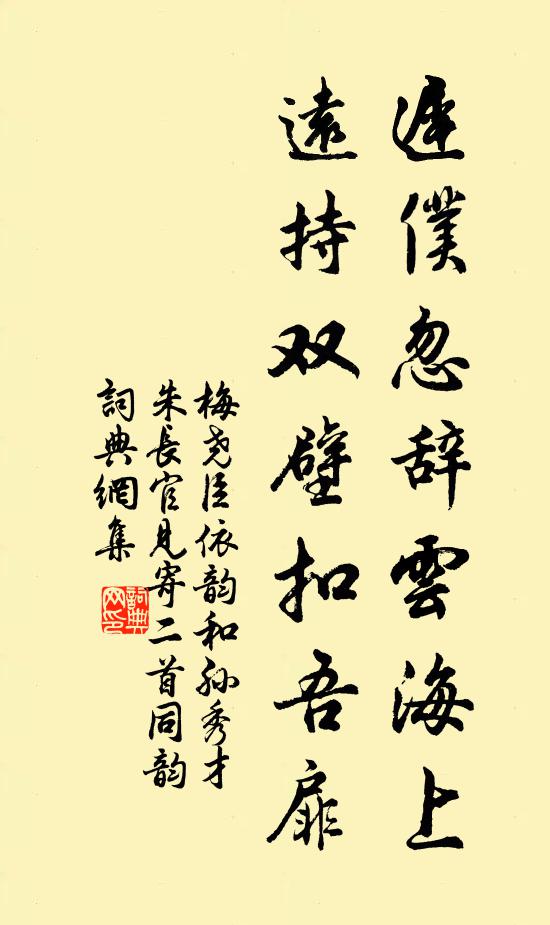 遲僕忽辞雲海上
遠持双璧扣吾扉
梅尧臣依韵和孙秀才
朱長官見寄二首同韵
詞典網集
詞典网印